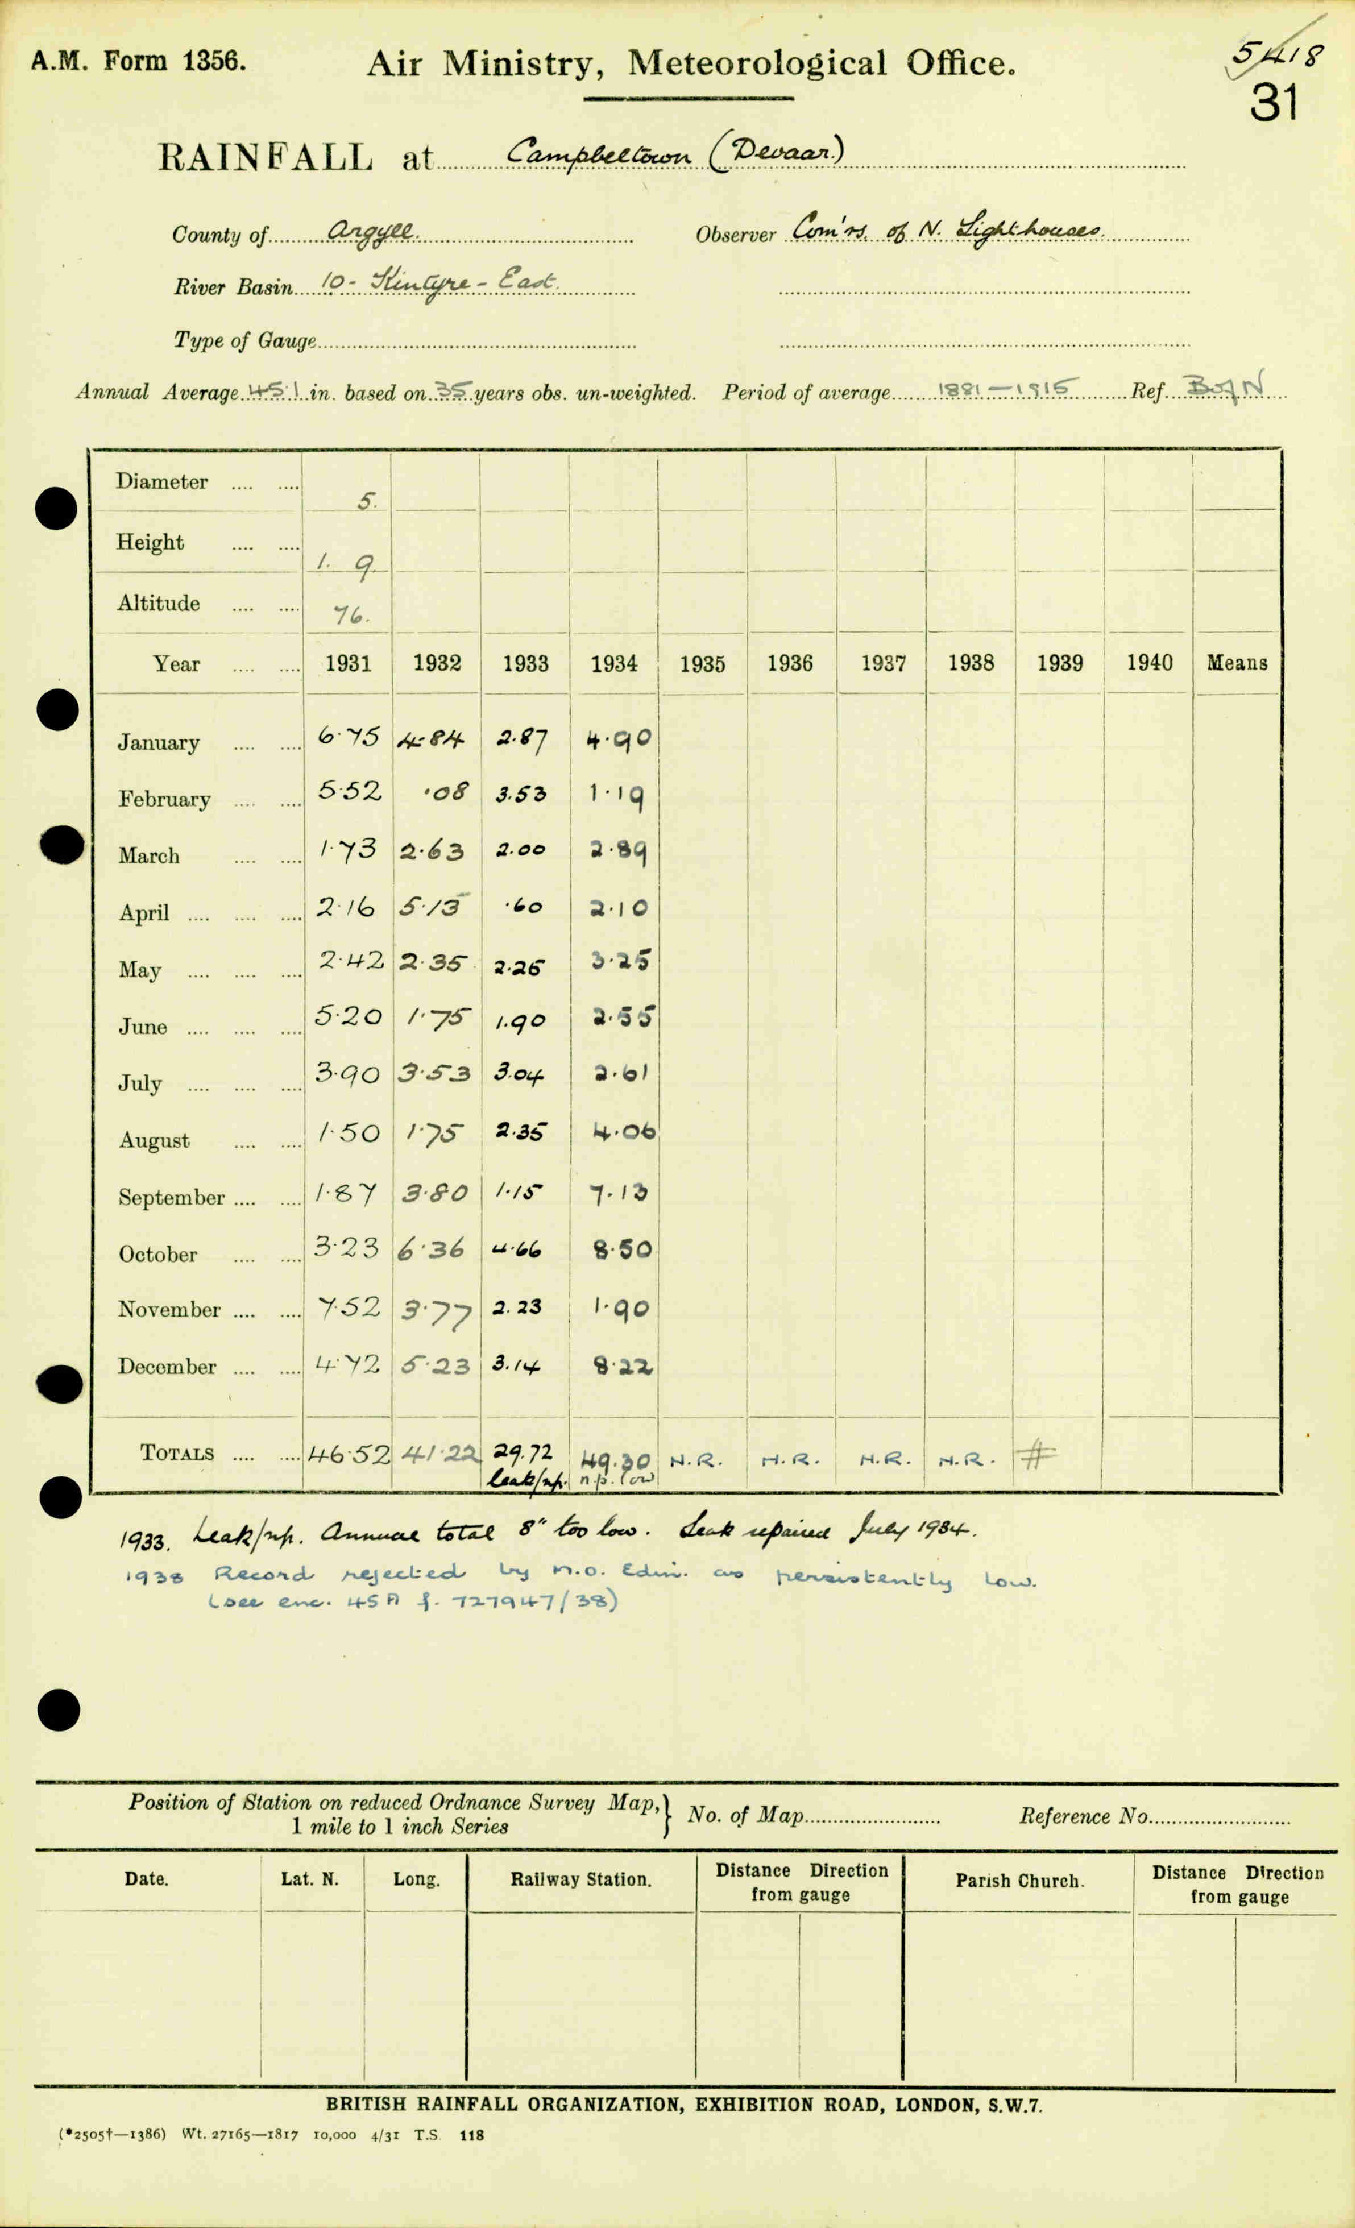 A.M. Form 1356.
Air Ministry, Meteorological Office.
5418
31
RAINFALL at Campbeltown (Devaar)
County of Argyll. Observer Com'rs. of N. Lighthouses.
River Basin 10 - Kintyre - East.
Type of Gauge
Annual Average 45.1 in. based on 35 years obs. un-weighted. Period of average 1881-1915 Ref. B of N
Diameter 5.
Height 1. 9.
Altitude 76.
Year 1931 1932 1933 1934 1935 1936 1937 1938 1939 1940 Means
January 6.75 4.84 2.87 4.90
February 5.52 .08 3.53 1.19
March 1.73 2.63 2.00 2.89
April 2.16 5.13 .60 2.10
May 2.42 2.35 2.25 3.25
June 5.20 1.75 1.90 2.55
July 3.90 3.53 3.04 2.61
August 1.50 1.75 2.35 4.06
September 1.87 3.80 1.15 7.13
October 3.23 6.36 4.66 8.50
November 7.52 3.77 2.23 1.90
December 4.72 5.23 3.14 8.22
TOTALS 46.52 41.22 29.72 49.30 N.R. N.R. N.R. N.R. #
leak/np. n.p. low
1933. Leak/np. Annual total 8" too low. Leak repaired July 1934.
1938 Record rejected by M.O. Edin. as persistently low.
(see enc. 45A f. 727947/38)
Position of Station on reduced Ordnance Survey Map, } No. of Map Reference No.
1 mile to 1 inch Series
Date. Lat. N. Long. Railway Station. Distance Direction from gauge Parish Church. Distance Direction from gauge
BRITISH RAINFALL ORGANIZATION, EXHIBITION ROAD, LONDON, S.W.7.
(*2505†—1386) Wt. 27165—1817 10,000 4/31 T.S. 118